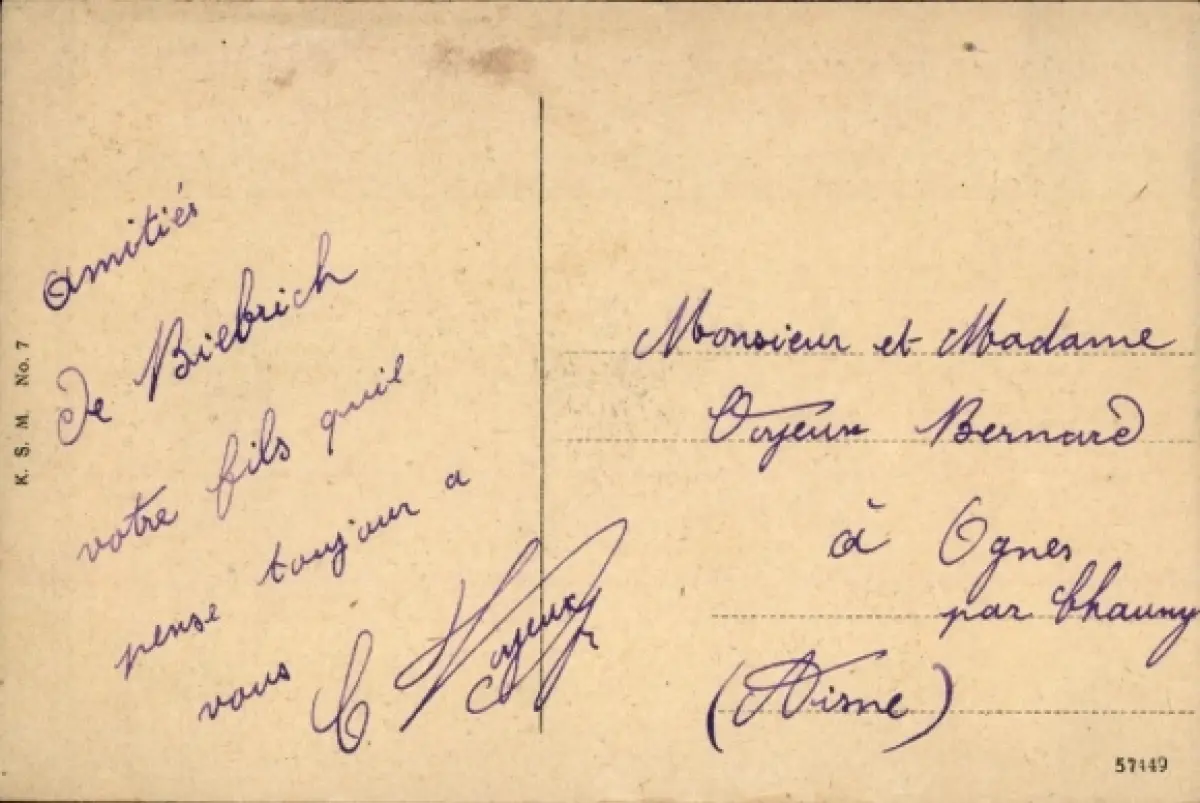 amitiés
de Biebrich
votre fils quil
pense toujour a
vous
C. Voyeux
Monsieur et Madame
Voyeux Bernard
à Ognes
par Chauny
(Aisne)
K. S. M. No. 7
57449